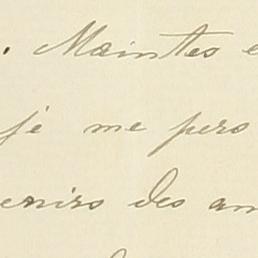 . Maintes e
je me pers
enirs des am